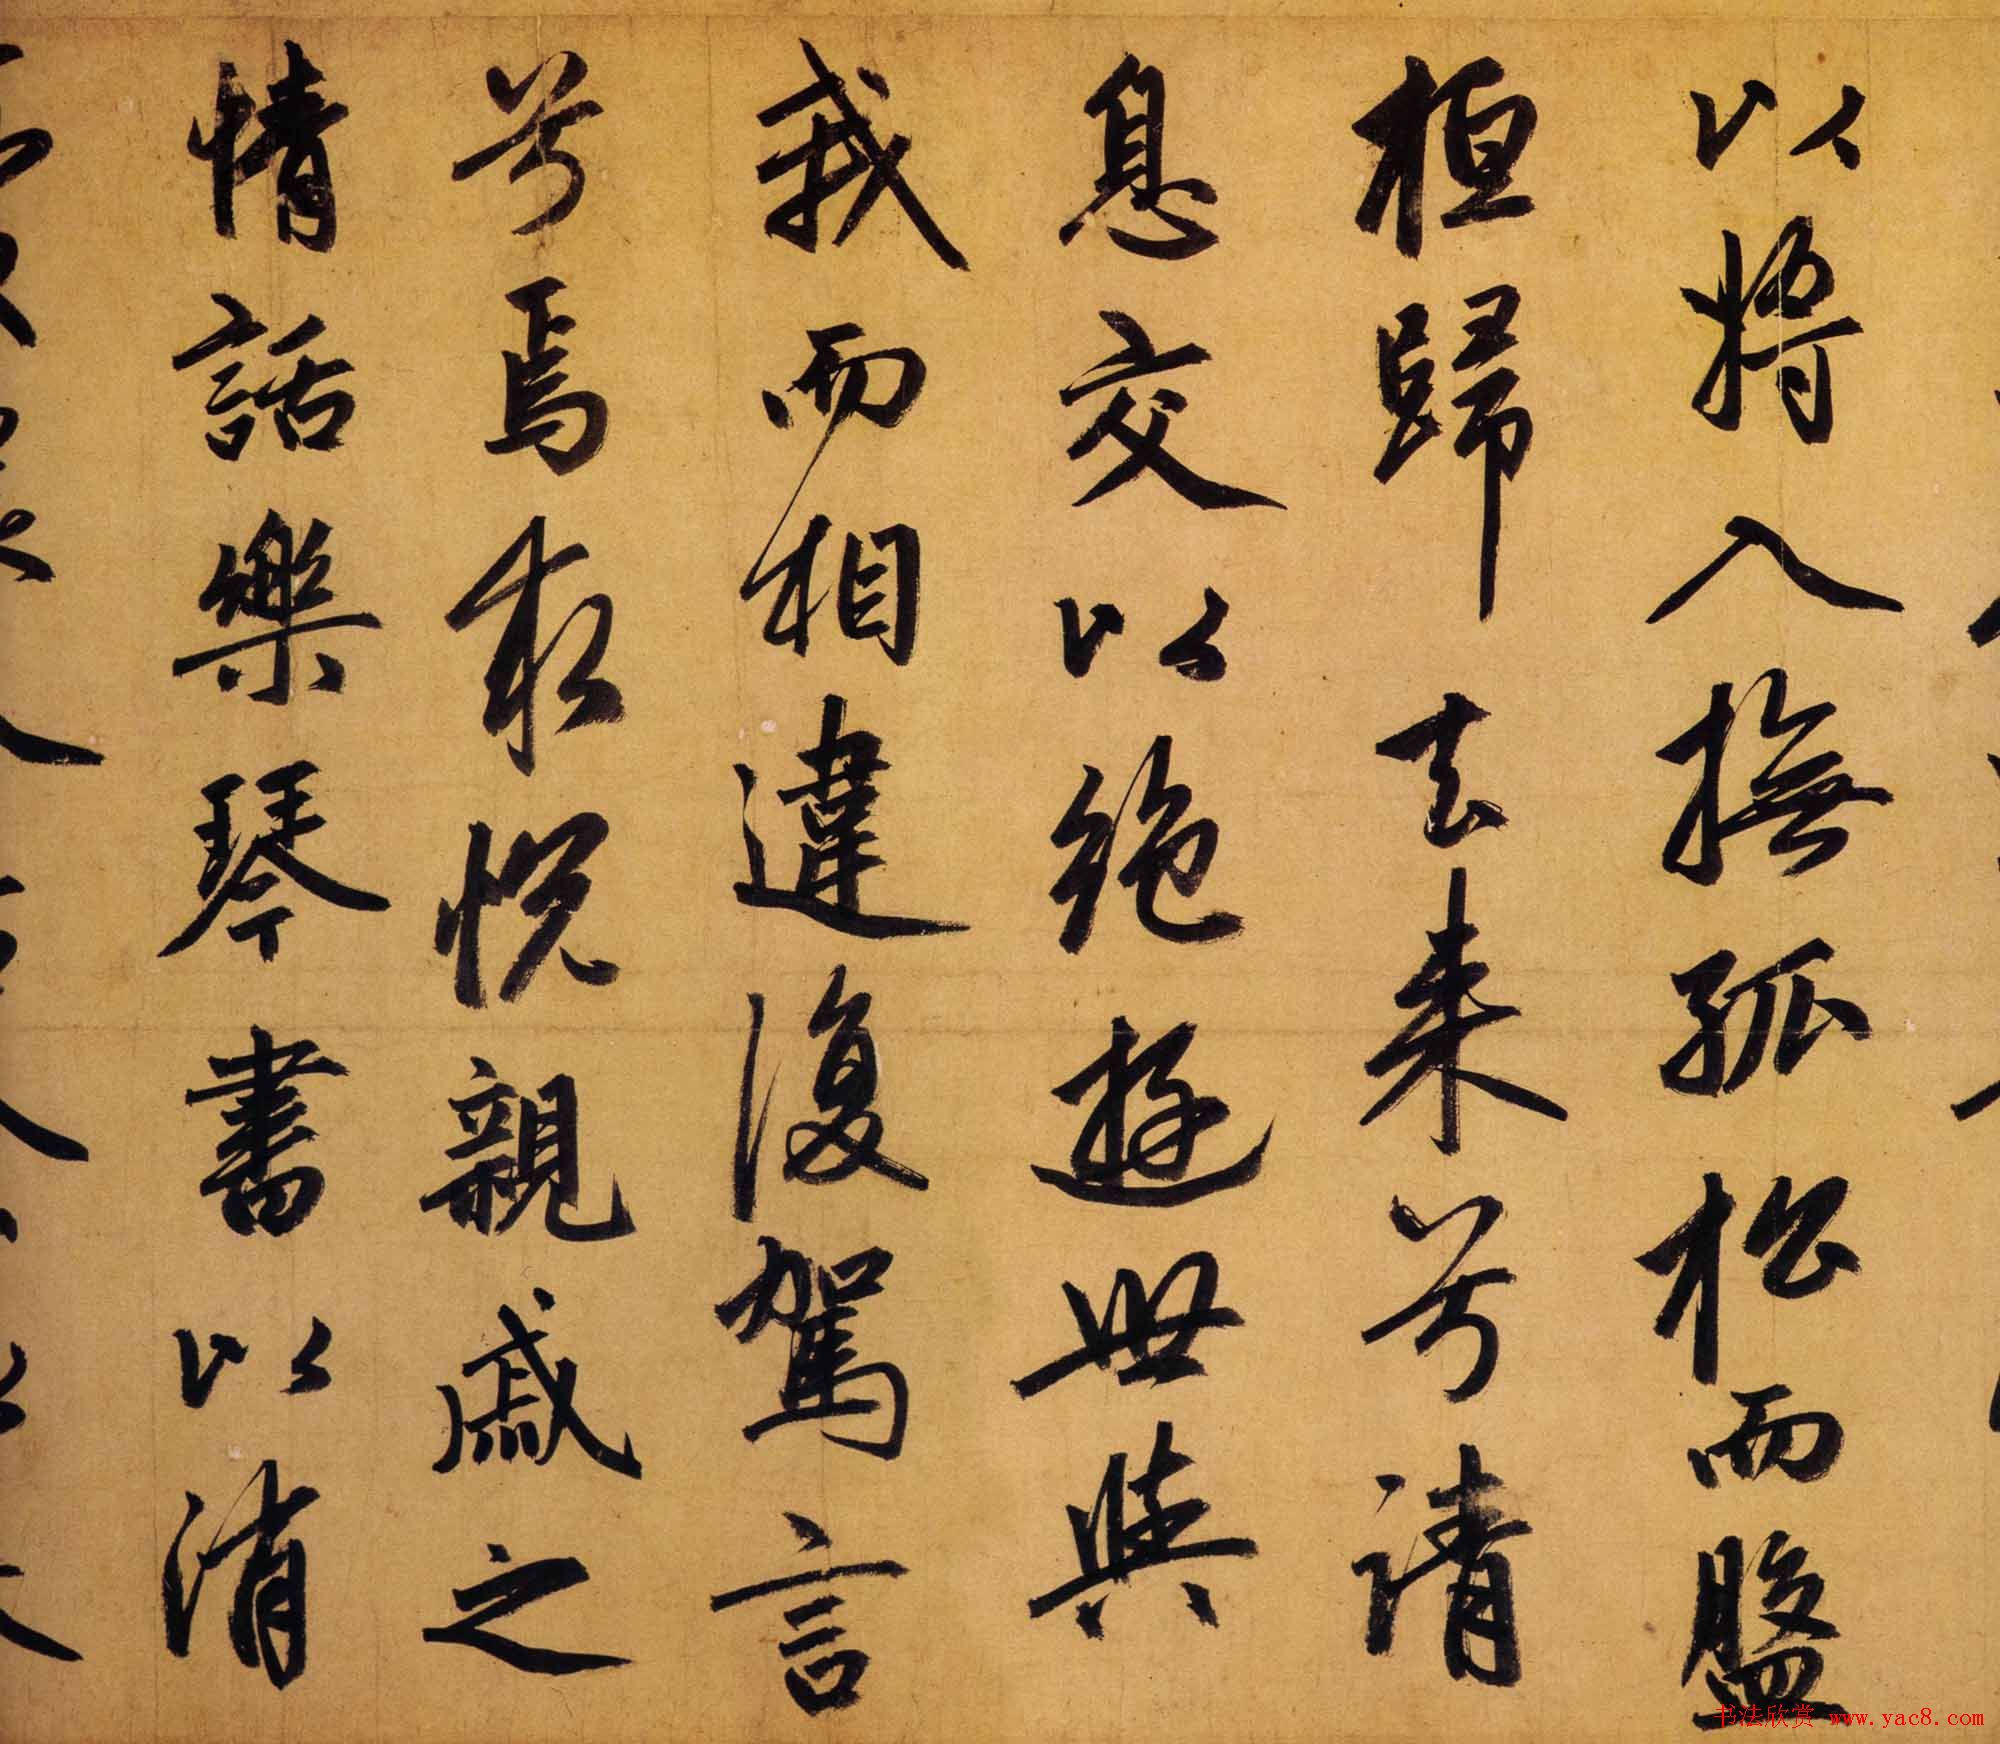 以將入撫孤松而盤
桓歸去来兮請
息交以絶遊世與
我而相違復駕言
兮焉求悦親戚之
情話樂琴書以消
书法欣赏 www.yac8.com